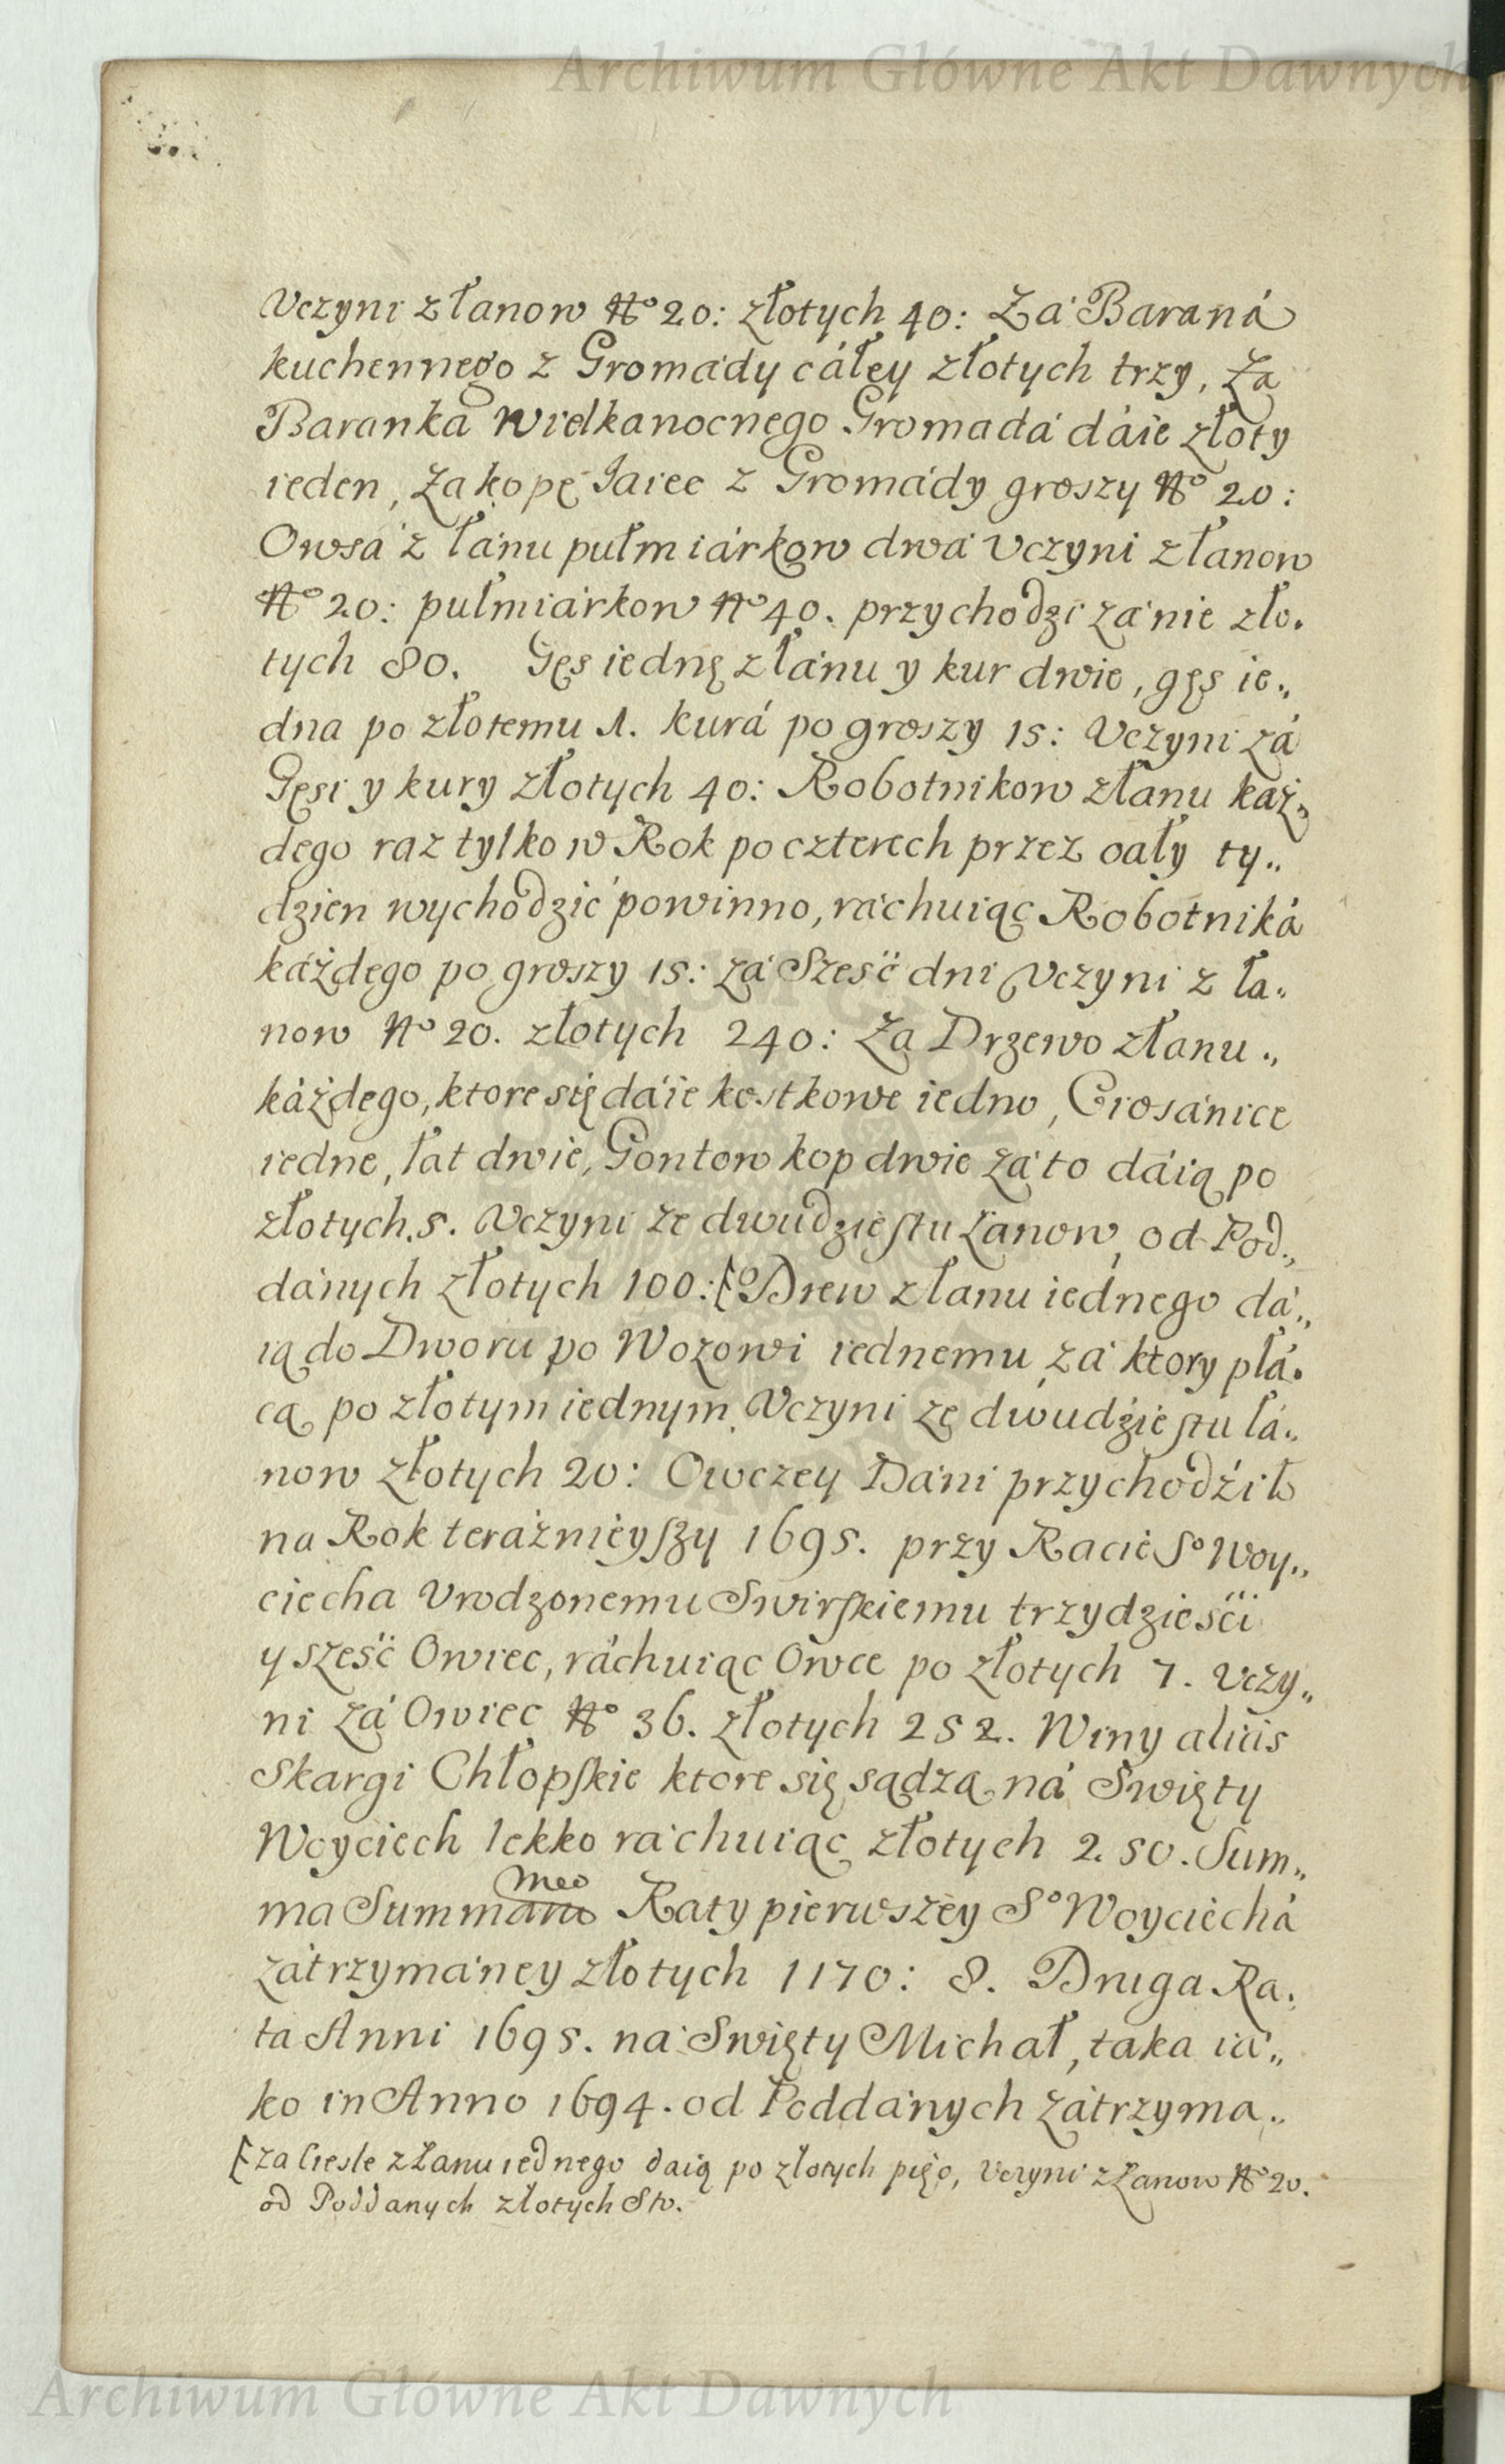 Archiwum Główne Akt Dawnych
Vczyni z łanow No 20: złotych 40: Za Baraná
kuchennego z Gromády cáłey złotych trzy, Za
Baranka Wielkanocnego Gromadá dáie złoty
ieden, Za kopę Iaiec z Gromády groszy No 20:
Owsá z łánu pułmiárkow dwá Vczyni z łanow
No 20: pułmiárkow No 40. przychodzi zá nie zło.
tych 80. Gęs iednę z łánu y kur dwie, gęś ie„
dna po złotemu 1. kurá po groszy 15: Vczyni zá
Gęsi y kury złotych 40: Robotnikow z łanu káż„
dego raz tylko w Rok po czterech przez cały ty„
dzien wychodzić powinno, ráchuiąc Robotniká
káżdego po groszy 15: zá Sześć dni Vczyni z ła„
now No 20. złotych 240: Za Drzewo z łanu„
káżdego, ktore się dáie kostkowe iedno, Ciosánice
iedne, łat dwie, Gontow kop dwie zá to dáią po
złotych. 5. Vczyni ze dwudziestu Łanow, od Pod„
dánych złotych 100: [Drew z łanu iednego dá„
ią do Dworu po Wozowi iednemu, zá ktory płá.
cą po złotym iednym. Vczyni ze dwudźiestu łá„
now złotych 20: Owczey Dáni przychodźiło
na Rok teráźnieyszy 1695. przy Racie So Woy„
ciecha Vrodzonemu Swirskiemu trzydzieści
y sześć Owiec, ráchuiąc Owce po złotych 7. Vczy„
ni zá Owiec No 36. złotych 252. Winy aliás
Skargi Chłopskie ktore się sądzą ná Swięty
Woyciech lekko ráchuiąc złotych 250. Sum„
meo
ma Summam Raty pierwszey So Woyciechá
zátrzymáney złotych 1170: 8. Druga Ra.
ta Anni 1695. ná Swięty Michał, taka iá„
ko in Anno 1694. od Poddánych zátrzyma„
[za Ciesle z Łanu iednego daią po złotych pięc, Vczyni z Łanow No 20.
od Poddanych złotych Sto.
Archiwum Główne Akt Dawnych